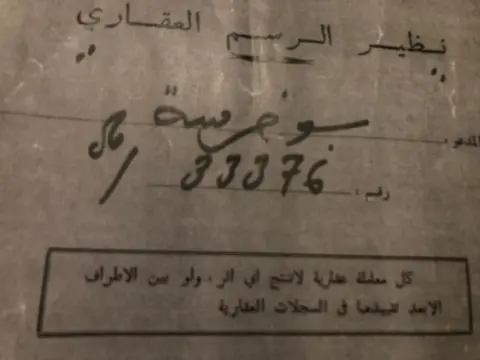 نظير الرسم العقاري
المدعو: بوخريسة
رقم: 33376 / R
كل معاملة عقارية لا تنتج اي اثر، ولو بين الاطراف
الا بعد تقييدها في السجلات العقارية